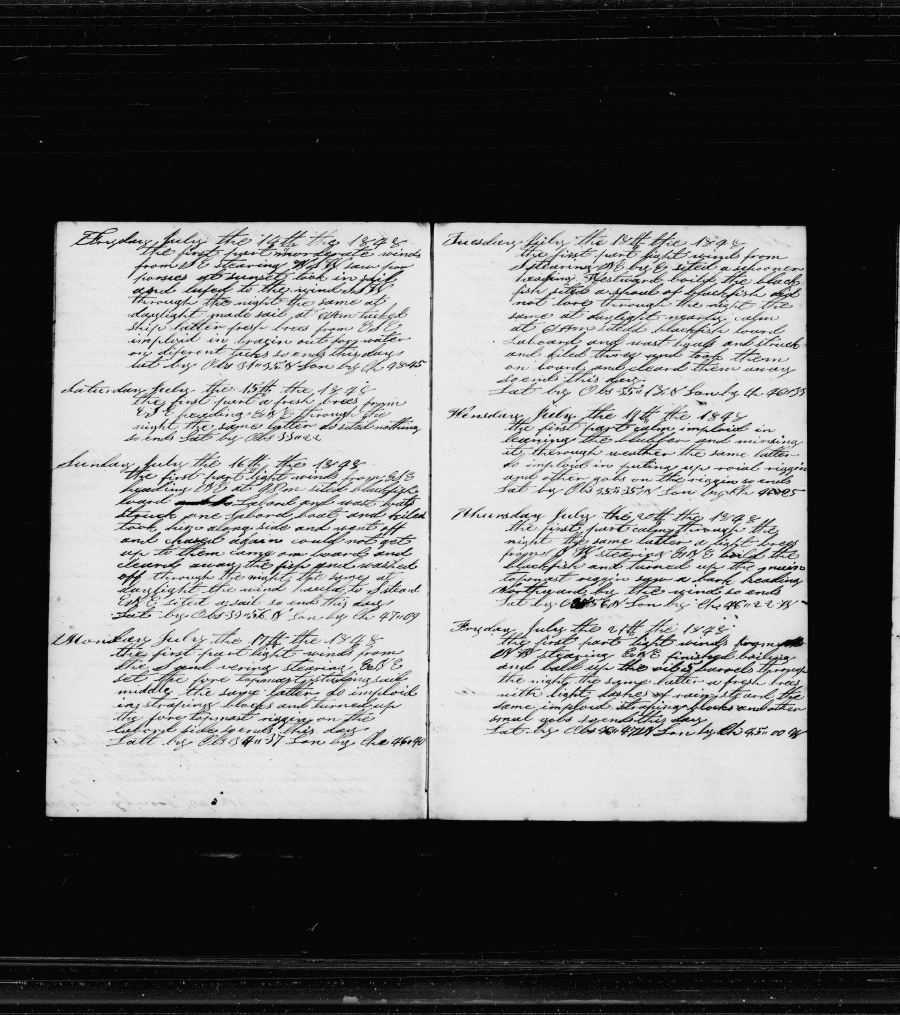 Fryday July the 14th the 1848
the first part morderate winds
from S E stearing saw por
poises at sunset took in sail
and lufed to the wind
through the night the same at
daylight made sail at tacked
ship latter fresh brees from E S E
imploid in out for water
on diferent tacks so ends this day
Lat by Obs 34"35 N Lon by Ch 48"45
Saturday July the 15th the 1848
the first part a fresh brees from
E S E heading through the
night the same latter do sited nothing
so ends Lat by Obs 33"22
Sunday July the 16th the 1848
the first part light winds from
heading N E at sited blackfish
loard and wast boats
struck one labord boat and
took him along side and went off
and chased again could not get
up to them came on board and
cleard away the and washed
off through the night the same at
daylight the wind hauld to S steard
E N E sited a sail so ends this day
Lat by Obs 33"56 N Lon by Ch 47"09
Monday July the 17th the 1848
the first part light winds from
the S and vering stearing
set the fore topmast studing sail
middle the same latter do imploid
in straping blocks and turned up
the fore topmast riggin on the
labord side so ends this day
Latt by Obs 34"37 Lon by Ch 46"40
Tuesday July the 18th the 1848
the first part light winds from
S stearing N E by E sited a schooner
heading Westward boild the black
fish sited a shoal of blackfish did
not lore through the night the
same at daylight nearly calm
at sited blackfish loard
Laboard and wast boats and struck
and kiled three and took them
on board and cleard them away
so ends this day
Lat by Obs 35"13 N Lon by Ch 46"33
Wensday July the 19th the 1848
the first part calm imploid in
leaning the blubber and minsing
it through weather the same latter
do imploid in puting up roial riggin
and other gobs on the riggin so ends
Lat by Obs 35"35 N Lon by Ch
Thursday July the 20th the 1848
the first part calm through the
night the same latter a light brees
from S W stearing boild the
blackfish and turned up the main
topmast riggin saw a bark heading
northward by the wind so ends
Lat by Lon by Ch 46"22 W
Fryday July the 21th the 1848
the first part light winds from
stearing finished boiling
and ball up the oil 5 barrels through
the night the same latter a fresh brees
with light dashes of rain steard the
same imploid straping blocks and other
smal gobs so ends this day
Lat by Obs Lon by Ch 45"00 W